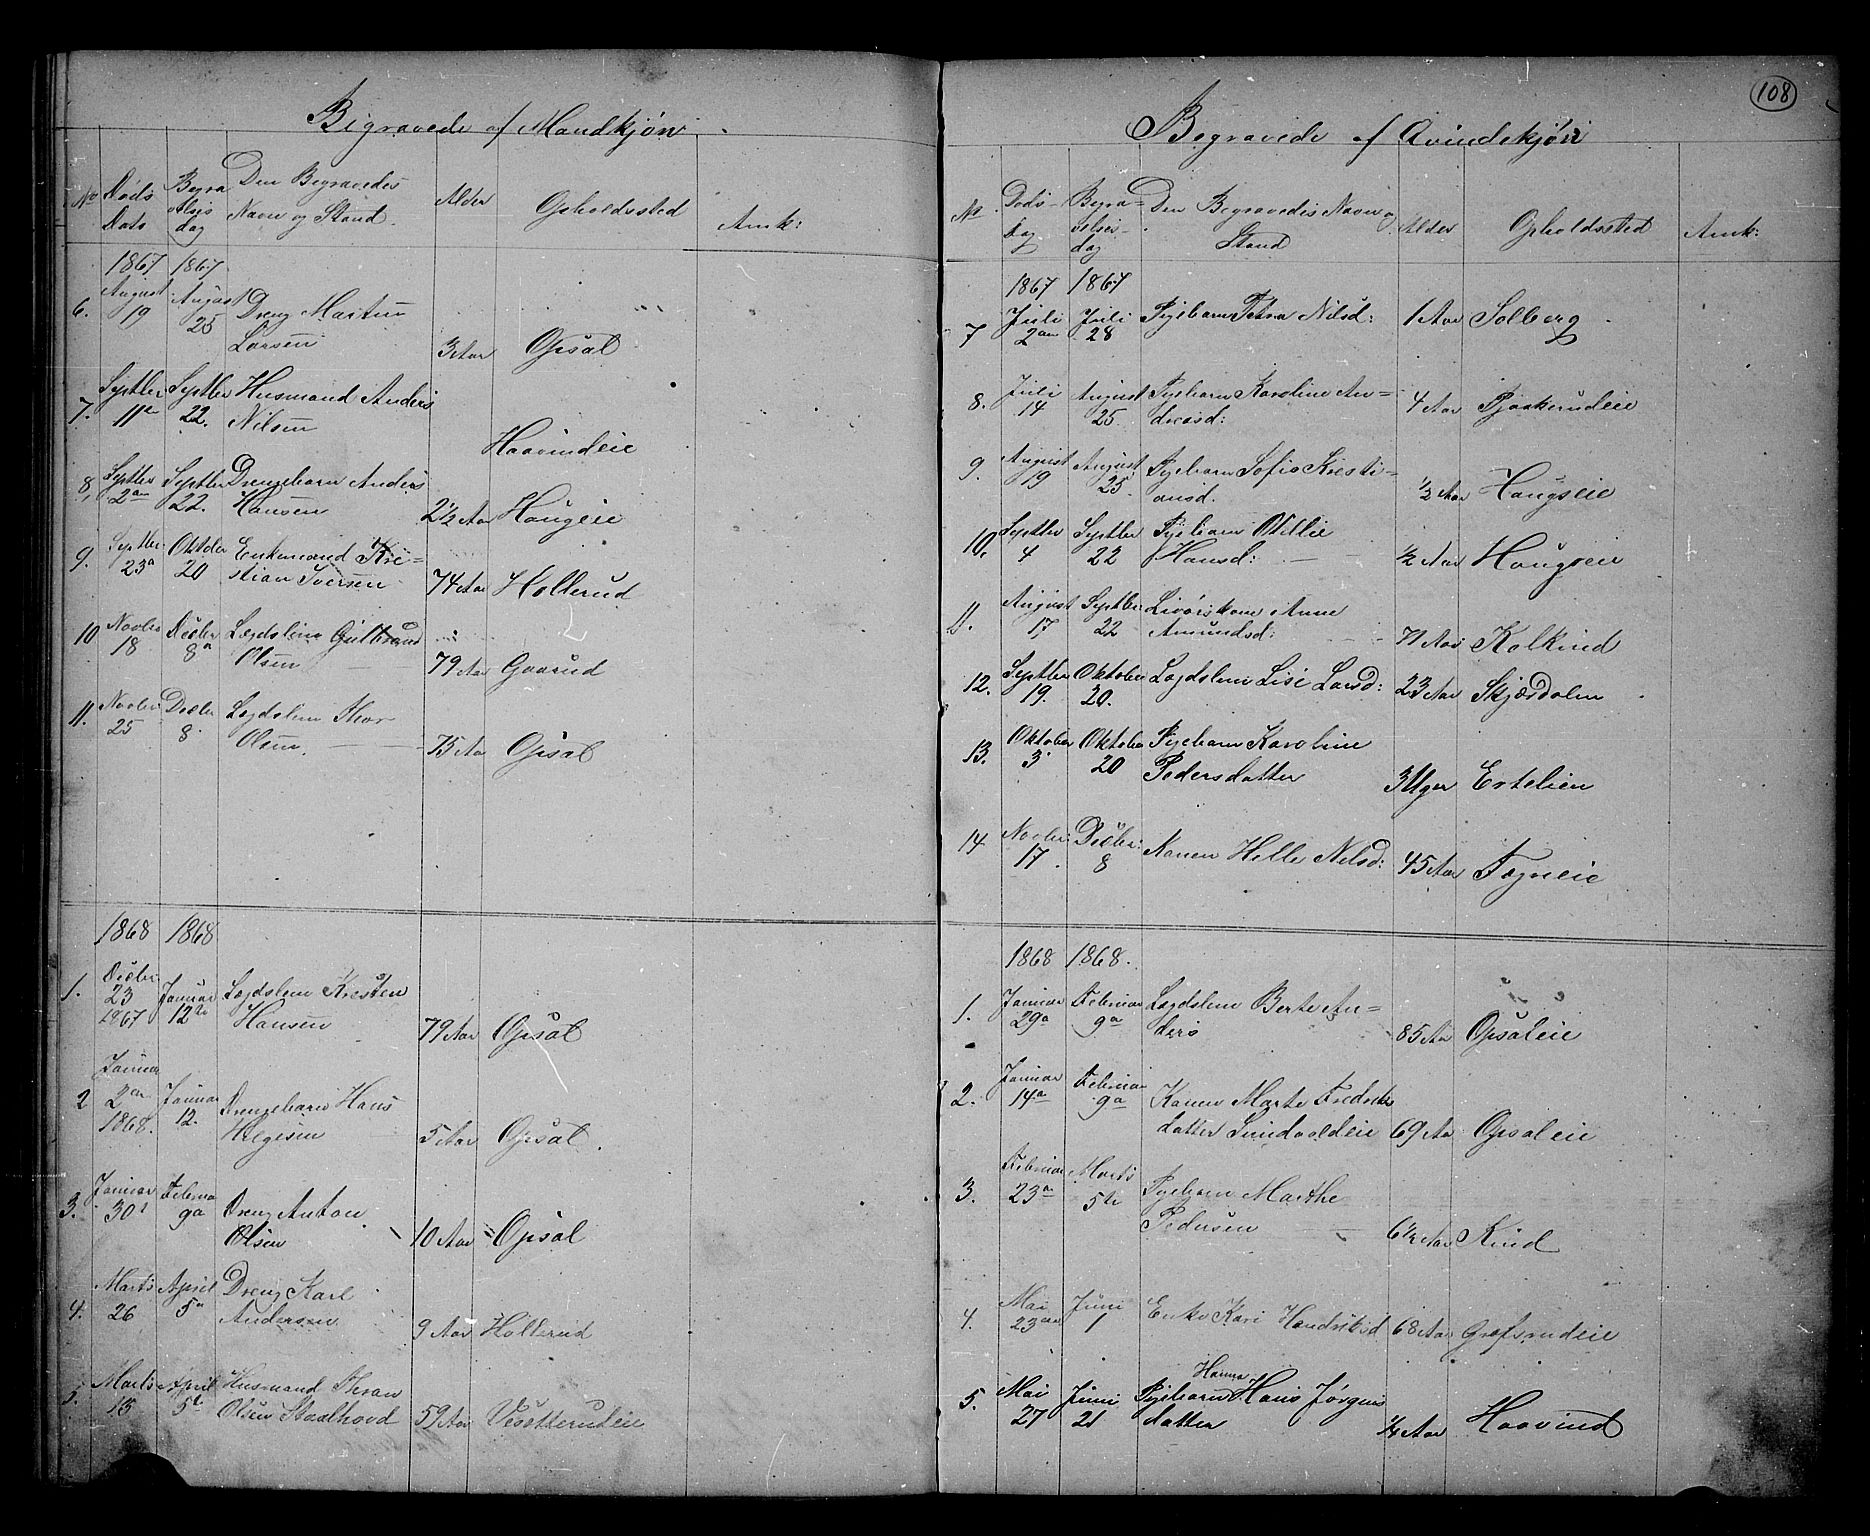 Begravede af Mandkjøn.
No Døds Dato Begravelsesdag Den Begravedes Navn og Stand Alder Opholdssted Amk:
1867 1867
6. August 19 August 25 Dreng Martin Larsen 3 Aar Opsal
7. Septbr 11te Septbr 22. Husmand Anders Nilsen Haavindeie
8. Septbr 2den Septbr 22. Drengebarn Anders Hansen 2½ Aar Haugeie
9. Septbr 23a Oktober 20 Enkemand Kristian Iversen 74 Aar Hollerud
10 Novbr 18 Decbr 8a Lægdslem Gulbrand Olsen 79 Aar Gaarud
11. Novbr 25 Decbr 8. Lægdslem Thor Olsen 75 Aar Opsal
1868 1868
1. Decbr 23 1867 Januar 12te Lægdslem Kresten Hansen 79 Aar Opsal
2 Januar 2den 1868. Januar 12. Drengebarn Hans Helgesen 5 Aar Opsal
3. Januar 30 Februar 9a Dreng Anton Olsen 10 Aar Opsal
4. Marts 26 April 5a Dreng Karl Andersen 9 Aar Hollerud
5. Marts 15 April 5te Husmand Olsen Staalhovd 59 Aar Vesetterudeie
108
Begravede af Qvindekjøn
No Døds-dag Begravelses-dag Den Begravedes Navn og Stand Alder Opholdssted Amk:
1867 1867
7 Juli 2den Juli 28 Pigebarn Petra Nilsd: 1 Aar Solberg
8. Juli 14 August 25 Pigebarn Karoline Andreasd: 4 Aar Pjaakerudeie
9. August 19 August 25 Pigebarn Sofie Kristiansd. ½ Aar Haugseie
10. Septbr 4 Septbr 22 Pigebarn Otillie Hansd: ½ Aar Haugseie
11. August 17 Septbr 22 Anne Amundsd: 71 Aar Kolkind
12. Septbr 19. Oktober 20. Lægdslem Lise Larsd: 23 Aar Skjærdalen
13. Oktober 3 Oktober 20 Pigebarn Karoline Pedersdatter 3 Uger Ertelien
14 Novbr: 17. Decbr: 8 Konen Helle Nilsd: 45 Aar Fægneie
1868 1868.
1. Januar 29a Februar 9a Lægdslem Berte Anders 85 Aar Opsaleie
2. Januar 14a Februar 9a Konen Marte Fredriksdatter Sundvoldeie 69 Aar Opsaleie
3. Februar 23a Marts 5te Pigebarn Marthe Pedersen 6½ Aar Kind
4. Mai 23den Juni 1 Enke Kari Hendriksd 68 Aar Grøfsrudeie
5. Mai 27 Juni 21 Pigebarn Hanna Hans Jørgensdatter ¼ Aar Haavind